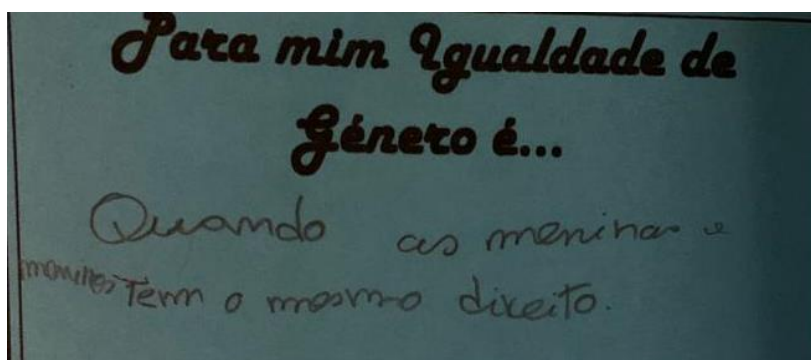 Para mim Igualdade de
Género é...
Quando as meninas e
meninos Tem o mesmo direito.